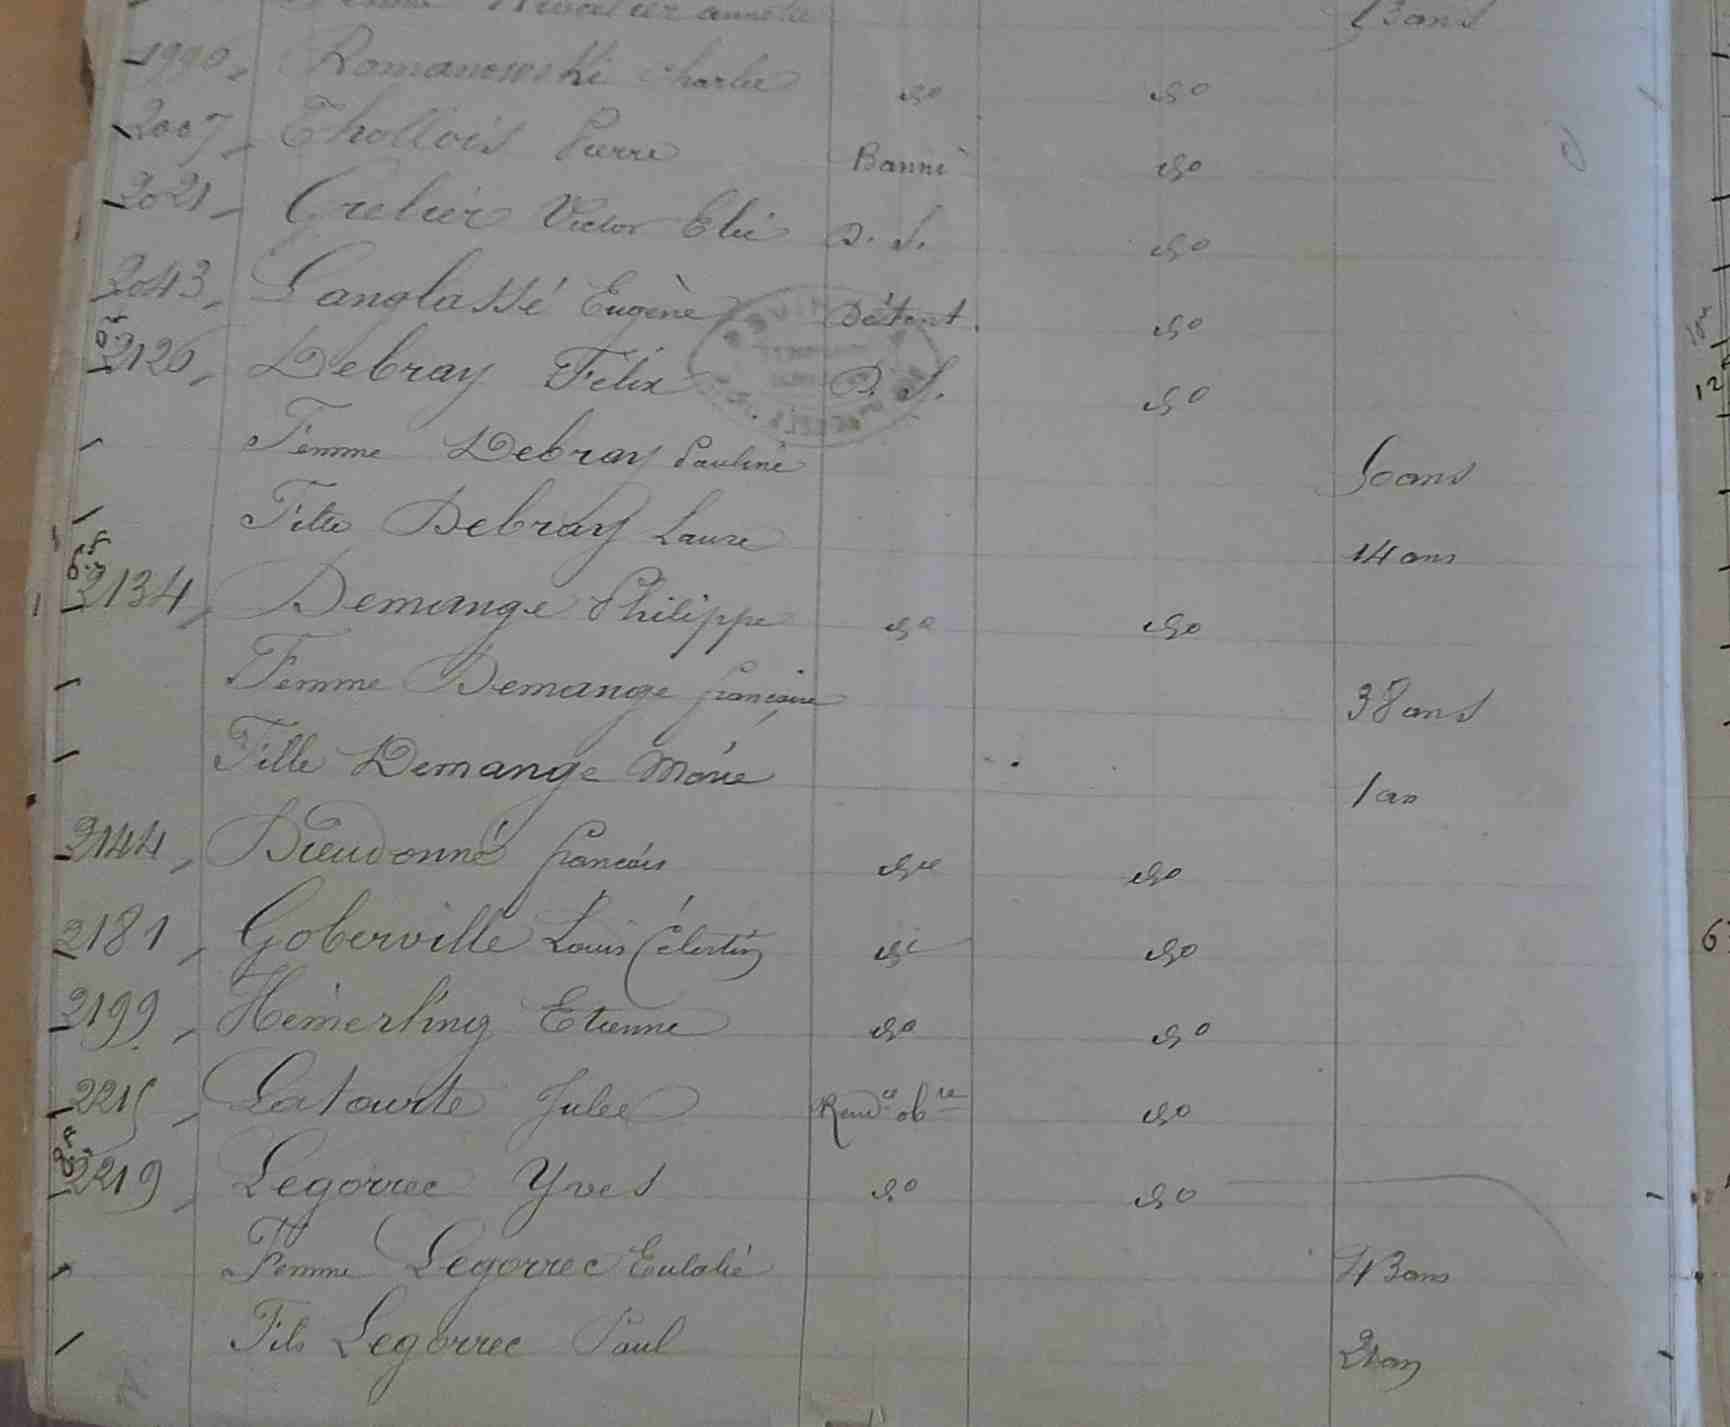 13 ans
1990 Romanowski Charles do do
2007 Thollois Pierre Banni do
2021 Grelier Victor Elie D. S. do
2043 Langlassé Eugène Détent. do
2126 Debray Félix D. S. do
Femme Debray Pauline 50 ans
Fille Debray Laure 14 ans
2134 Demange Philippe do do
Femme Demange françoise 38 ans
Fille Demange Marie 1 an
2144 Dieudonné françois do do
2181 Goberville Louis Célestin do do
2199 Hémerling Etienne do do
2215 Latourte Jules do
2219 Legorrec Yves do do
Femme Legorrec Eulalie 43 ans
Fils Legorrec Paul